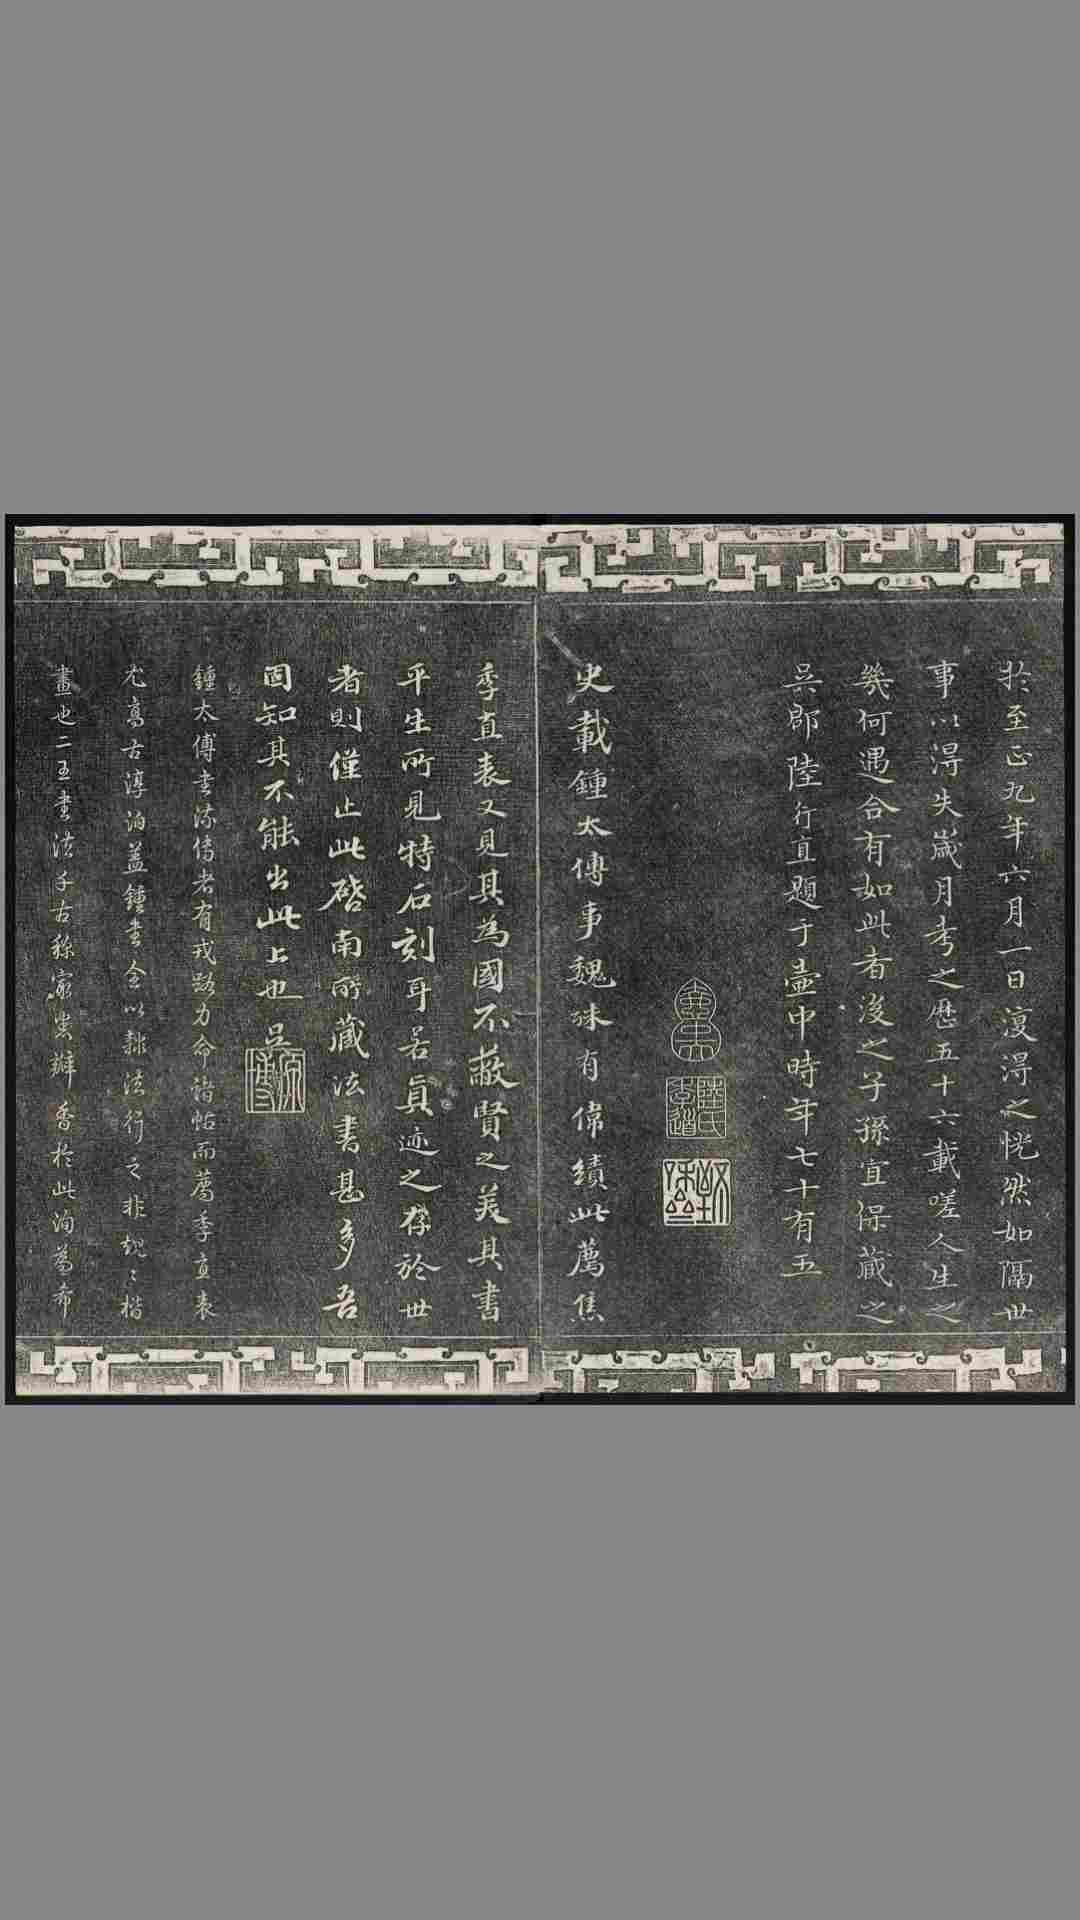 於至正九年六月一日復得之恍然如隔世
事以得失歲月考之歷五十六載嗟人生之
幾何遇合有如此者後之子孫宜保藏之
吳郡陸行直題于壺中時年七十有五
陸氏
史載鍾太傅事魏殊有偉績此薦焦
季直表又見其為國不蔽賢之美其書
平生所見特石刻耳若真迹之存於世
者則僅止此啓南所藏法書甚多吾
固知其不能出此上也吳
原博
鍾太傅書流傳者有戎路力命諸帖而薦季直表
尤高古淳泊蓋鍾書全以隸法行之非規〻楷
畫也二王書法千古稱宗然瓣香於此洵為希